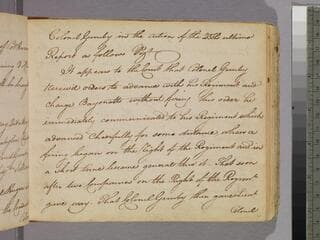 Colonel Gunby in the action of the 25th ultimo
Report as follows Vizt
It appears to the Court that Colonel Gunby
Received orders to advance with his Regiment and
charge Bayonetts without firing this order he
immediately communicated to his Regiment which
advanced Chearfully for some distance when a
firing began on the Right of the Regiment and in
a Short time became general thro' it. That soon
after two Companies on the Right of the Regimt
gave way. That Colonel Gunby then gave Lieut
Colonel